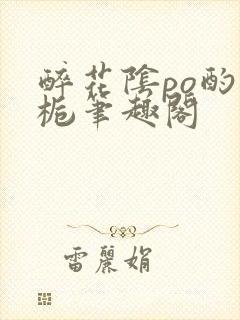 醉花陰po酌
梔筆趣閣
雷麗娟